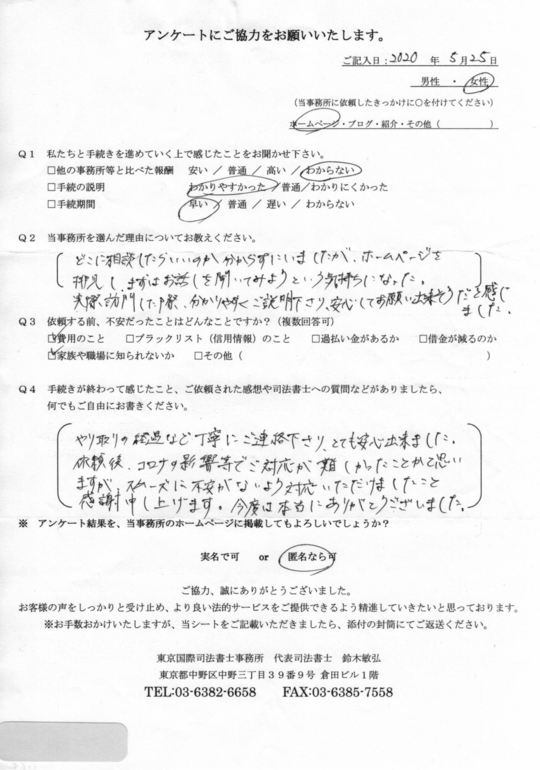 アンケートにご協力をお願いいたします。
ご記入日:2020 年 5月25日
男性 ・ 女性
(当事務所に依頼したきっかけに○を付けてください)
ホームページ・ブログ・紹介・その他( )
Q1 私たちと手続きを進めていく上で感じたことをお聞かせ下さい。
□他の事務所等と比べた報酬 安い / 普通 / 高い / わからない
□手続の説明 わかりやすかった / 普通 / わかりにくかった
□手続期間 早い / 普通 / 遅い / わからない
Q2 当事務所を選んだ理由についてお教えください。
どこに相談したらいいのか分からずにいましたが、ホームページを
拝見し、まずはお話しを聞いてみようという気持ちになった。
実際訪問した際、分かりやすくご説明下さり、安心してお願い出来そうだと感じ
ました。
Q3 依頼する前、不安だったことはどんなことですか?(複数回答可)
☑費用のこと □ブラックリスト(信用情報)のこと □過払い金があるか □借金が減るのか
☑家族や職場に知られないか □その他( )
Q4 手続きが終わって感じたこと、ご依頼された感想や司法書士への質問などがありましたら、
何でもご自由にお書きください。
やり取りの経過など丁寧にご連絡下さり、とても安心出来ました。
依頼後、コロナの影響等でご対応が難しかったことかと思い
ますが、スムーズに不安がないよう対応いただけましたこと
感謝申し上げます。今度は本当にありがとうございました。
※ アンケート結果を、当事務所のホームページに掲載してもよろしいでしょうか?
実名で可 or 匿名なら可
ご協力、誠にありがとうございました。
お客様の声をしっかりと受け止め、より良い法的サービスをご提供できるよう精進していきたいと思っております。
※お手数おかけいたしますが、当シートをご記載いただきましたら、添付の封筒にてご返送ください。
東京国際司法書士事務所 代表司法書士 鈴木敏弘
東京都中野区中野三丁目39番9号 倉田ビル1階
TEL:03-6382-6658 FAX:03-6385-7558